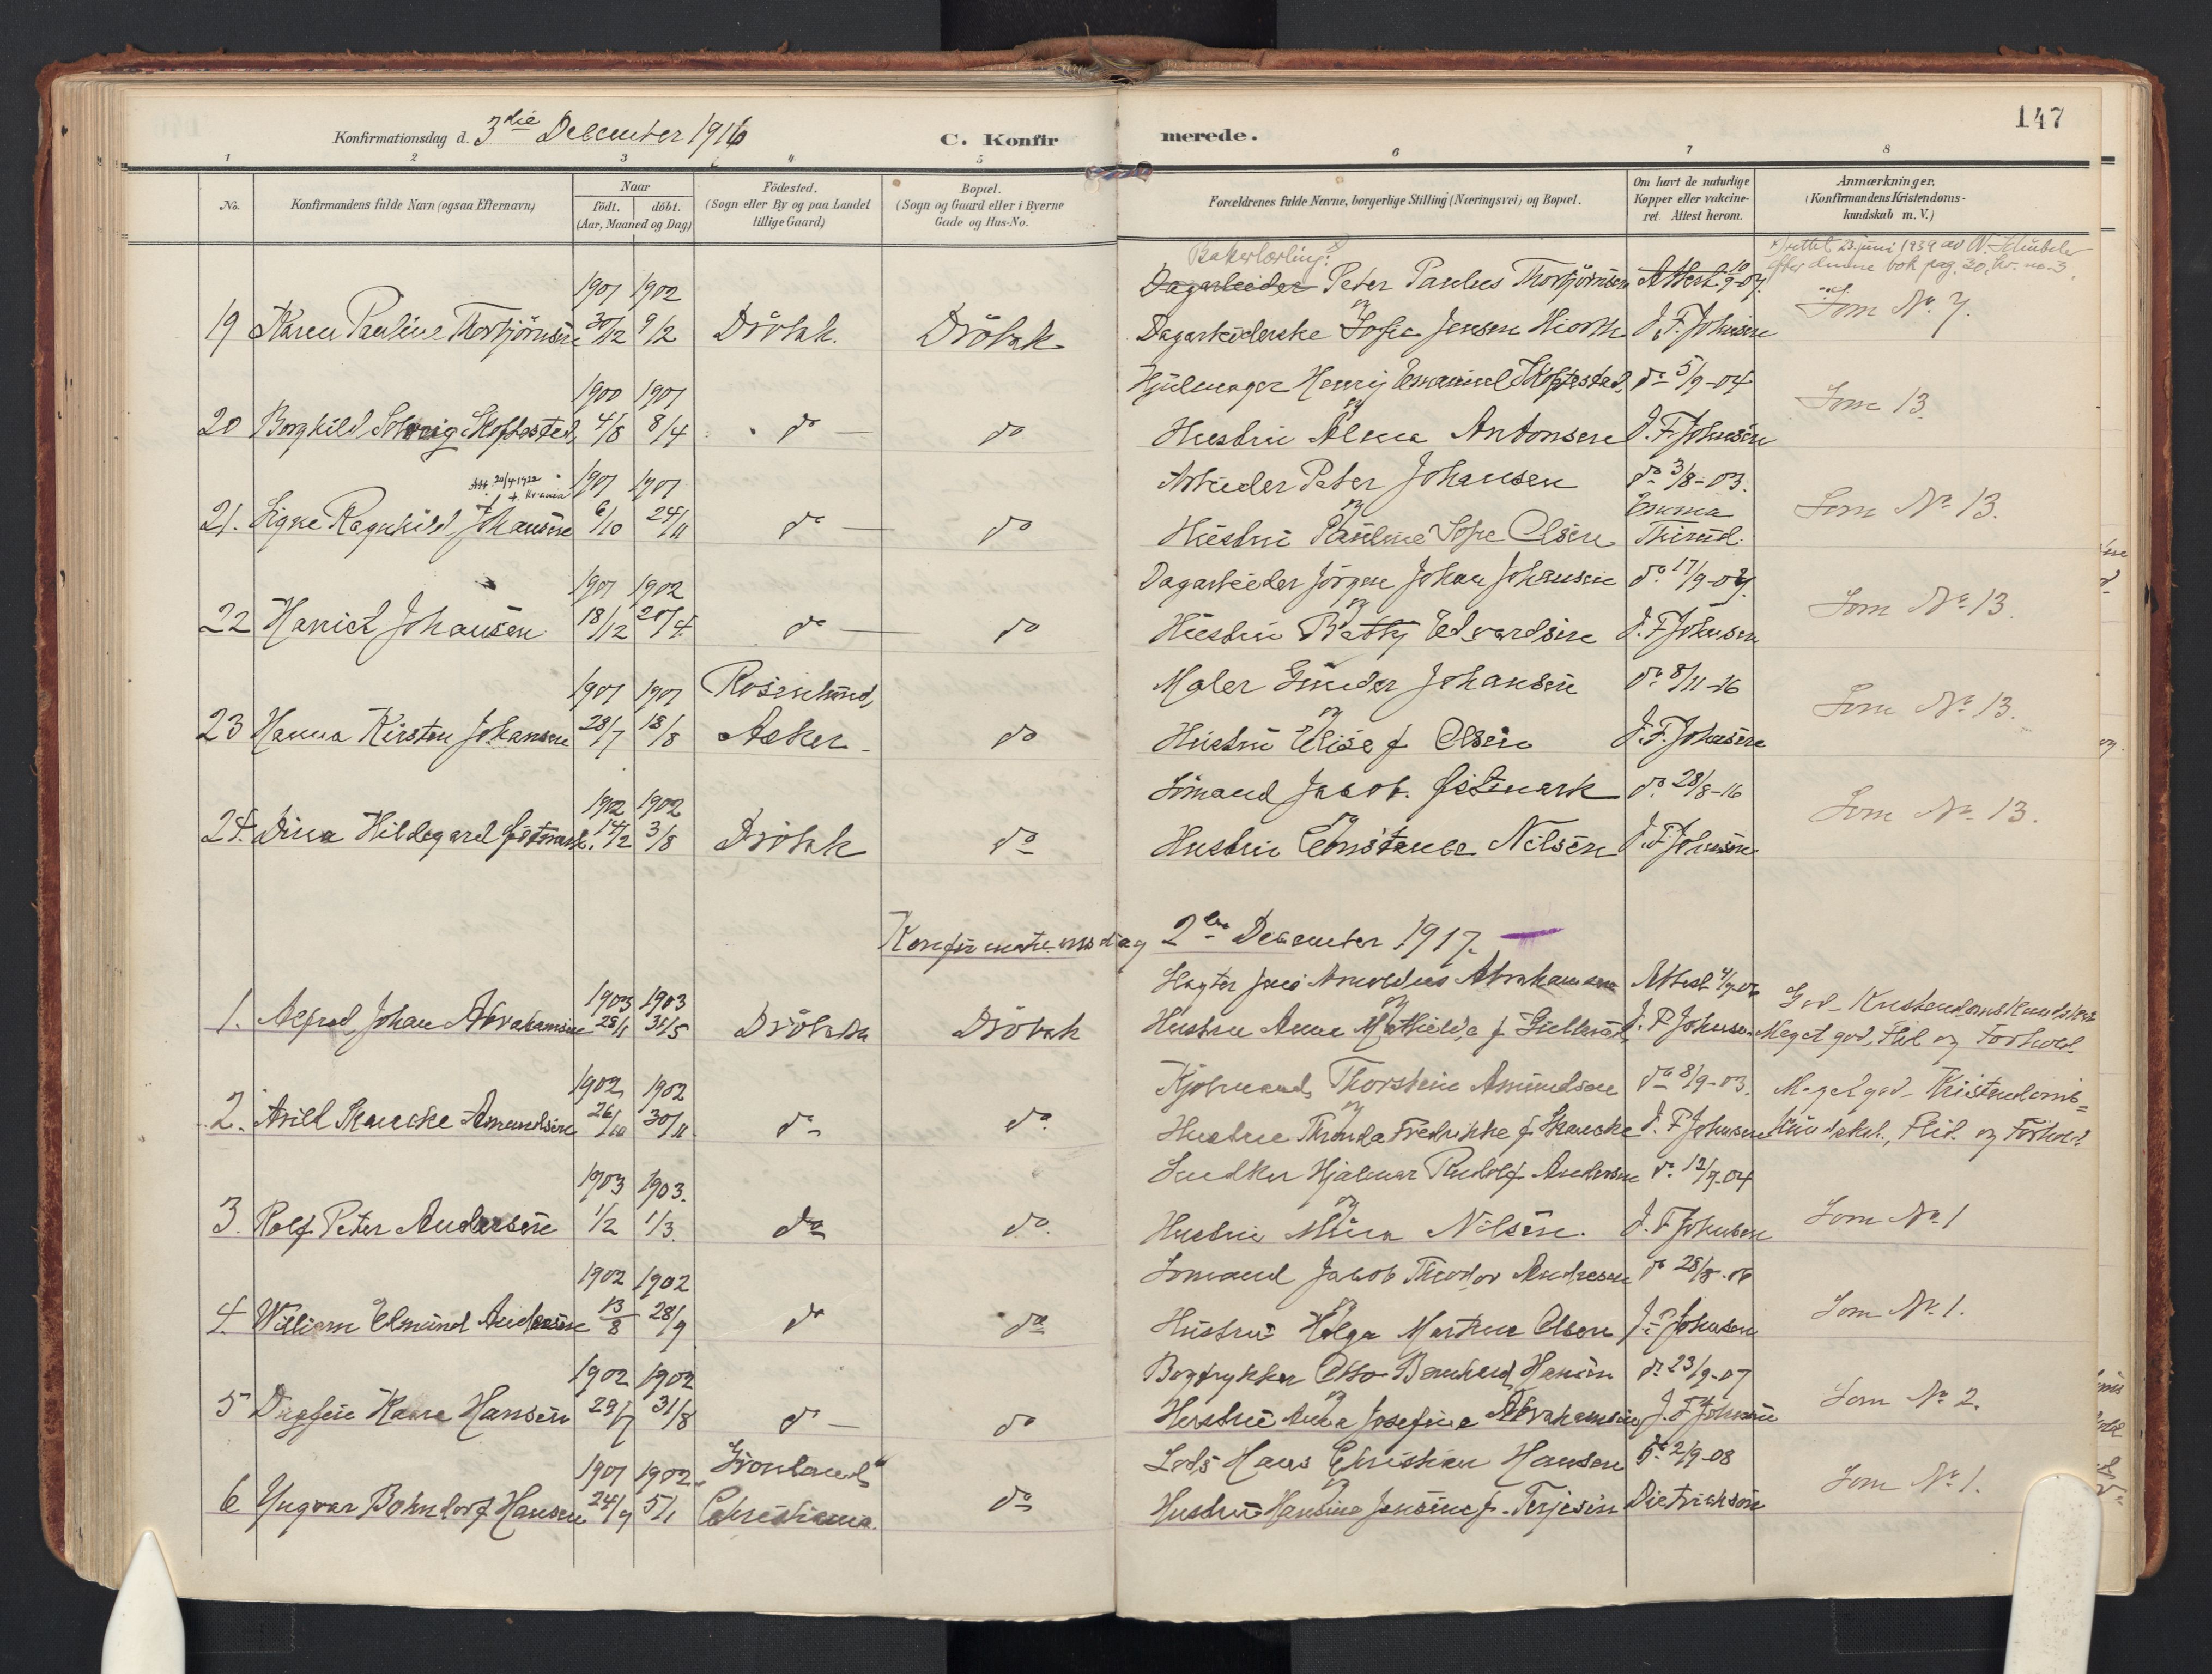 147
Konfirmationsdag d. 3die December 1916
C. Konfirmerede.
1 2 3 4 5 6 7 8
No.
Konfirmandens fulde Navn (ogsaa Efternavn)
Naar
födt. döbt.
(Aar, Maaned og Dag)
Födested.
(Sogn eller By og paa Landet
tillige Gaard)
Bopæl.
(Sogn og Gaard eller i Byerne
Gade og Hus-No.
Forældrenes fulde Navne, borgerlige Stilling (Næringsvei) og Bopæl.
Om havt de naturlige
Kopper eller vakcine-
ret Attest herom.
Anmærkninger.
(Konfirmandens Kristendoms-
kundskab m. V.)
x) rettet 23. juni 1939 av
efter denne bok pag. 30, no. 3.
Bakerlærling
1901 1902 Dagarbeider Peter Paulus Thorbjörnsen Attest 10/9-07.
19 Karen Pauline Thorbjörnsen 30/12 9/2 Dröbak. Dröbak Dagarbeiderske Sofie Jensen Hiorth J. F. Johnsen Som No. 7.
1900 1901 Hjulmager Henrij Emanuel Skoftestad, do 5/9-04
20 Borghild Solveig Skoftestad, 4/8 8/4 do do Hustru Alma Antonsen J. F. Johnsen Som 13.
20/4 1922
1901 1901 Arbeider Peter Johansen do 3/8-03.
21. Signe Ragnhild Johansen 6/10 24/11 do do Hustru Pauline Sofie Olsen Emma Thirud. Som No 13.
1901 1902 Dagarbeider Jörgen Johan Johansen do 17/9-07.
22 Harriet Johansen 18/12 20/4 do do Hustru Betty Edvardsen J. F. Johnsen Som No 13.
1901 1901 Rosenlund, Maler Gunder Johansen do 8/11-16
23 Hanna Kirsten Johansen 28/7 18/8 Asker do Hustru Elise f Olsen J. F. Johnsen Som No 13.
1902 1902 Sömand Jacob Östmark do 28/8-16
24. Dina Hildegard Östmark. 14/2 3/8 Dröbak do Hustru Constance Nilsen J. F. Johnsen Som No 13.
Konfirmationsdag 2den December 1917.
1903 1903 Arnoldus Abrahamsen Attest
1. Alfred Johan Abrahamsen 28/1 31/5 Dröbak Dröbak Hustru Anne Mathilde f. J. F. Johnsen God Kristendomskundskab
Meget god Flid og Forhold.
1902 1902 Kjöbmand Thorstein Amundsen do 8/9-03.
2. Arild Skancke Amundsen 26/10 30/11 do do Hustru Thonda Fredrikke f. Skancke J. F. Johnsen Meget god Kristendoms=
kundskab, Flid og Forhold
1903 1903. Snedker Hjalmar Rudolf Andersen do 12/9-04
3. Rolf Peter Andersen 1/2 1/3. do do. Hustru Mina Nilsen. J. F. Johnsen Som No 1
1902 1902 Sömand Jacob Theodor Andresen do 28/8-06
4. William Edmund Andresen 13/8 28/9 do do Hustru Helga Martine Olsen J. F. Johnsen Som No. 1.
1902 1902 Bogtrykker Otto Bernhard Hansen do 23/9-07
5 Dagfin Kaare Hansen 29/7 31/8 do do Hustru Anna Josefine Abrahamsen J. F. Johnsen Som No 2.
1901 1902 Grönland Lods Hans Christian Hansen do 2/9-08
6 Yngvar Bohndorf Hansen 24/9 5/1 Christiania. do Hustru Hansine Jensine f. Terjesen Dietrichson Som No 1.